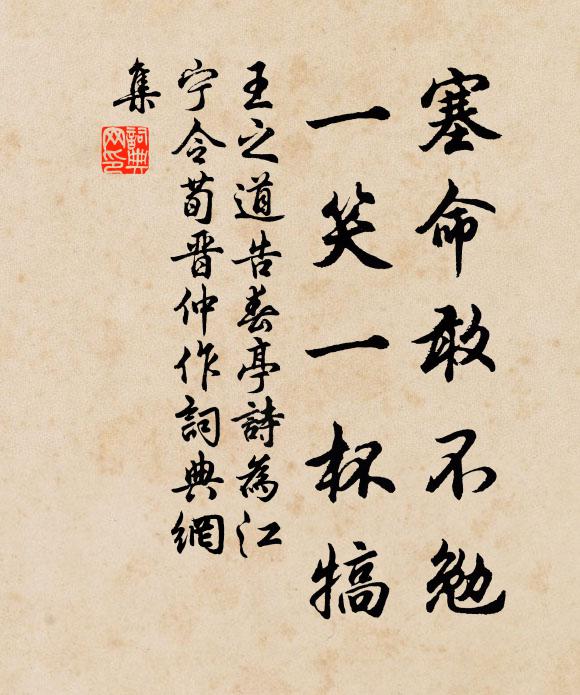 塞命敢不勉
一笑一杯犒
王之道告春亭詩為江
宁令荀晋仲作詞典網
集
詞典网印